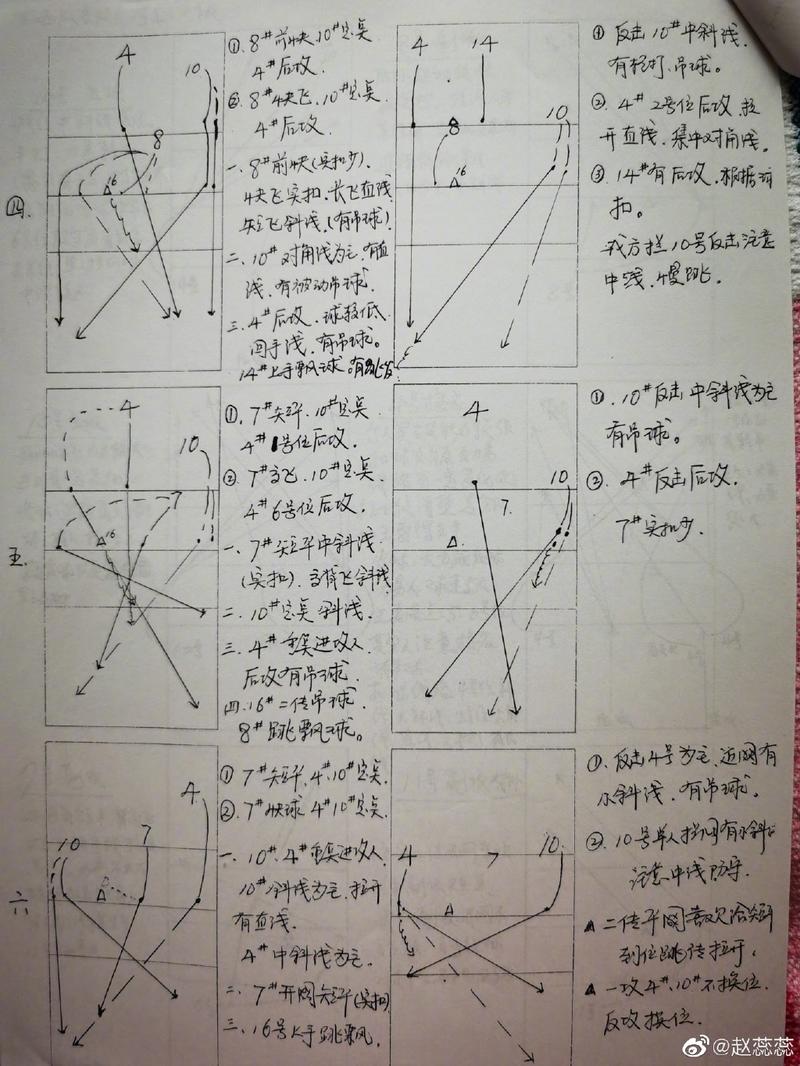 四.
4
10
8
16
①. 8#前快,10#定点
4#后攻.
② 8#快飞、10#定点
4#后攻
一. 8#前快(实扣少).
快飞实扣.长飞直线
短飞斜线.(有吊球)
二. 10#对角线为主,有直
线.有被动吊球.
三. 4#后攻.球较低
回手线.有吊球。
14#上手飘球.
4
14
8
16
10
① 反击10#中斜线.
有轻打、吊球。
② 4# 2号位后攻.拉
开直线.集中对角线。
③ 14#有后攻.根据
扣。
我方拦10号反击注意
中线.慢跳.
五.
4
10
7
16
①. 7#短平.10#定点
4# 1号位后攻.
② 7#背飞.10#定点.
4# 6号位后攻
一. 7#短平中斜线
(实扣).背飞斜线
二. 10#定点斜线.
三. 4#重点进攻人
后攻有吊球.
四. 16#二传吊球.
8#跳飘球。
4
10
7.
①. 10#反击中斜线为主
有吊球。
②. 4#反击后攻.
7#实扣少.
六
10
7
4
① 7#短平,4#.10#定点
②. 7#快球 4#10#定点.
一. 10#.4#重点进攻人
10#斜线为主.拉开
有直线.
4#中斜线为主.
二. 7#开网短平(实扣)
三. 16号上手跳飘.
4
7
10
①. 反击4号为主.近网有
小斜线.有吊球。
②. 10号单人拦网有小斜
注意中线防守.
二传平网喜欢给短平
到位跳传拉开.
一攻4#.10#不换位.
反攻换位.
@赵蕊蕊